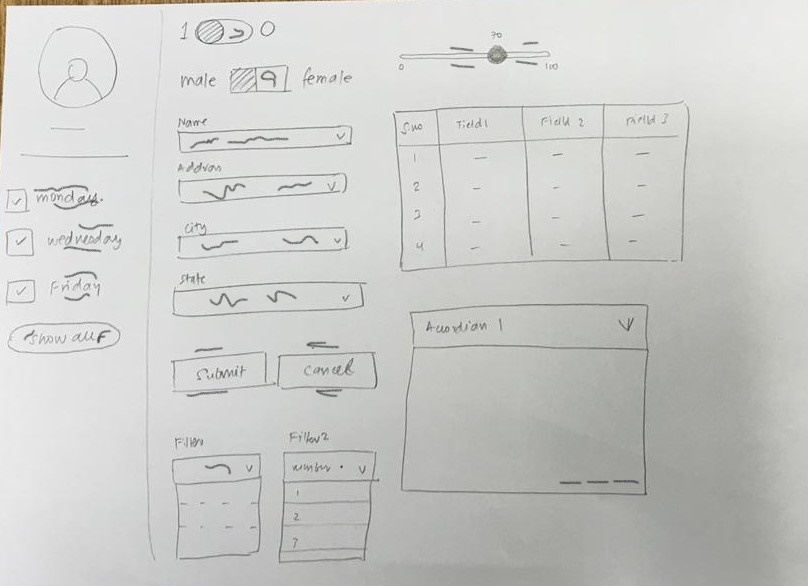 monday.
wednesday
Friday
show all
1 0
male female
Name
City
State
Submit Cancel
Filter
Filter 2
number
1
2
3
70
0 100
S.no Field 1 Field 2 Field 3
1
2
3
4
Accordian 1